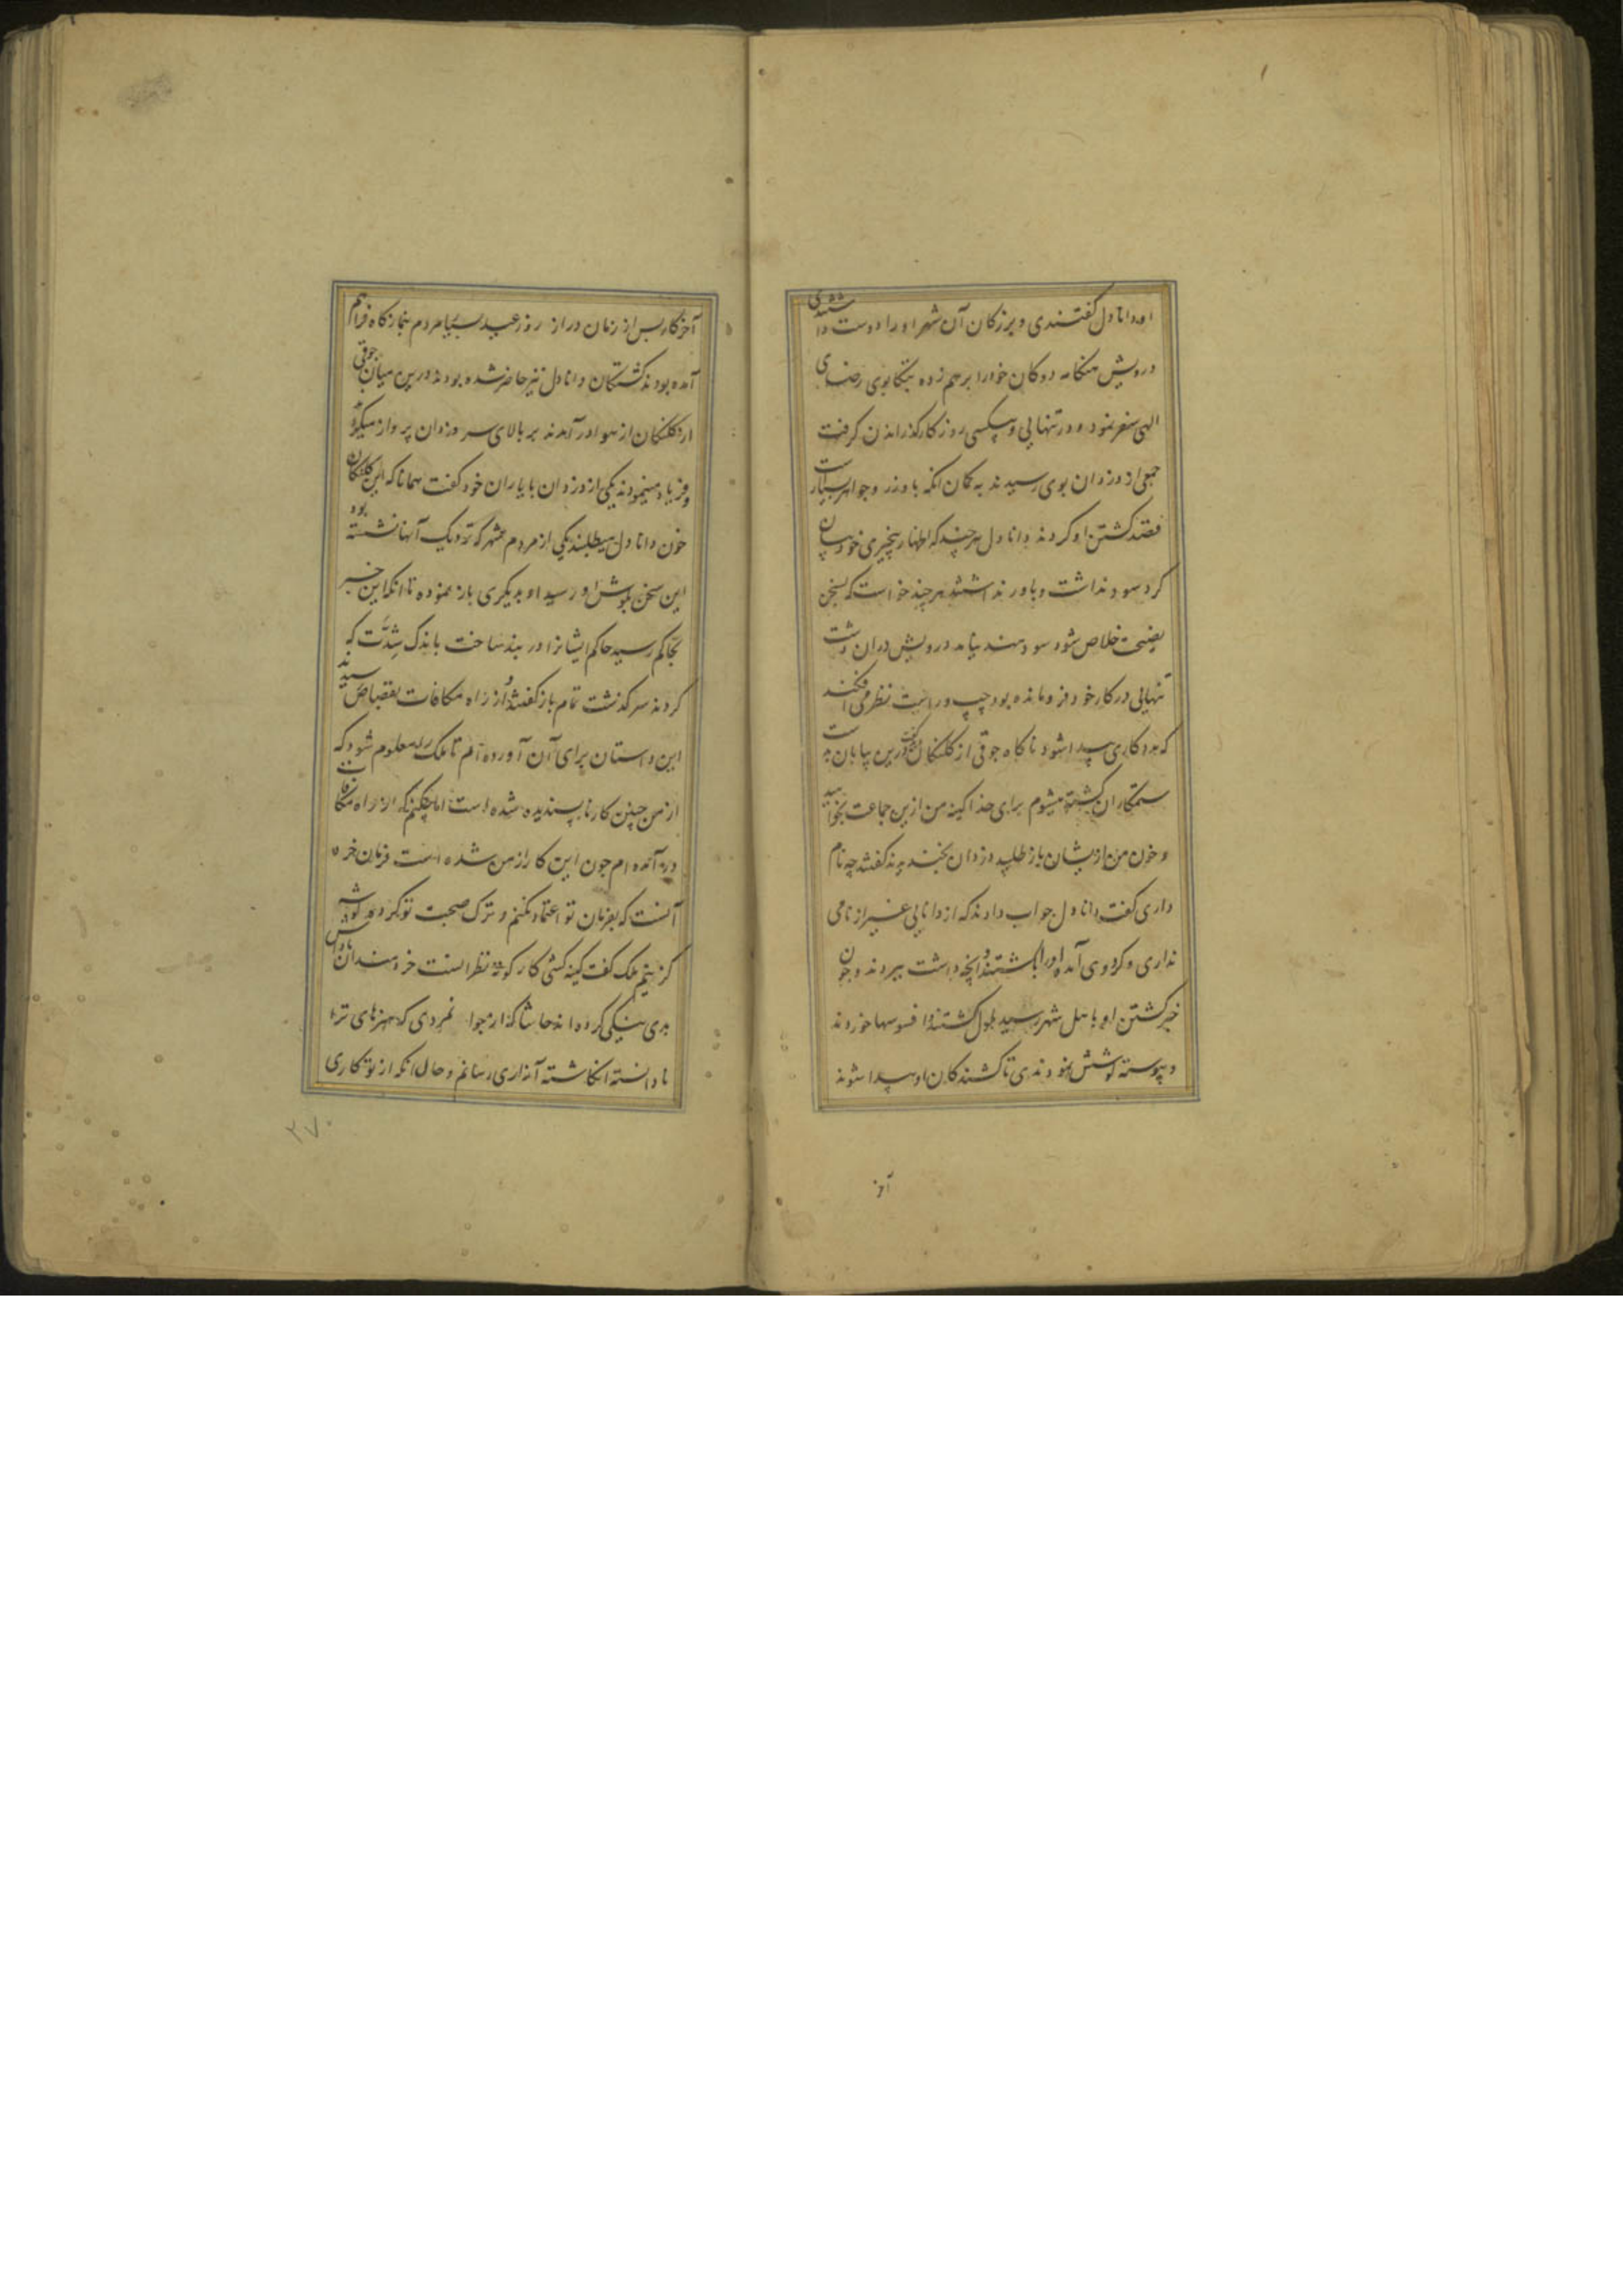 او دانادل گفتندی و بزرگان آن شهر او را دوست داشتندی
درویش هنگامه دوکان خود را برهم زده بتکاپوی رضای
الهی سفر نمود و در تنهایی و بیکسی روزگار گذرانیدن گرفت
جمعی از دزدان بوی رسیدند به گمان آنکه با او زر و جواهر بسیارست
قصد کشتن او کردند دانادل هر چند که اظهار بیچیزی خود بیان
کرد سود نداشت و باور نداشتند هر چند خواست که بسخن
نصیحت خلاص شود سودمند نیامد درویش دران دشت
تنهایی در کار خود فرو مانده بود چپ و راست نظر می افکند
که مددکاری پیدا شود ناگاه جوقی از کلنکان گفت درین بیابان بدست
ستمکاران کشته میشوم برای خدا کینه من ازین جماعت بخواهید
و خون من ازیشان باز طلبید دزدان بخندیدند گفتند چه نام
داری گفت دانادل جواب دادند که از دانایی غیر از نامی
نداری و کرد وی آمده او را بکشتند و آنچه داشت ببردند و چون
خبر کشتن او باهل شهر رسید ملول گشتند و افسوسها خوردند
و پیوسته کوشش نمودندی تا کشندگان او پیدا شوند
آخر
آخر کار پس از زمان دراز روز عید بسیار مردم بنمازگاه فراهم
آمده بودند کشندگان دانادل نیز حاضر شده بودند درین میان جوقی
از کلنکان از هوا درآمدند بر بالای سر دزدان پرواز میکردند
و فریاد مینمودند یکی از دزدان با یاران خود گفت همانا که این کلنکان
خون دانادل میطلبند یکی از مردم شهر که نزدیک آنها نشسته بود
این سخن بگوش او رسید او بدیگری باز نموده تا آنکه این خبر
بحاکم رسید حاکم ایشانرا در بند ساخت باندک شدت که
کردند سرگذشت تمام باز گفتند و از راه مکافات بقصاص رسیدند
این داستان برای آن آورده ام تا ملک را معلوم شود که
از من چنین کار ناپسندیده شده است اما چکنم که از راه مکافات
در آمده ام چون این کار از من شده است فرمان خرد
آنست که بفرمان تو اعتماد نکنم و ترک صحبت تو کرده گوشه
گزینم ملک گفت کینه کشی کار کوته نظرانست خردمندان پاداش
بدی نیکی کرده اند حاشا که از جوانمردی که هنرهای ترا
نادانسته انگاشته آزاری رسانم و حال آنکه از تو کاری
۲۷۰